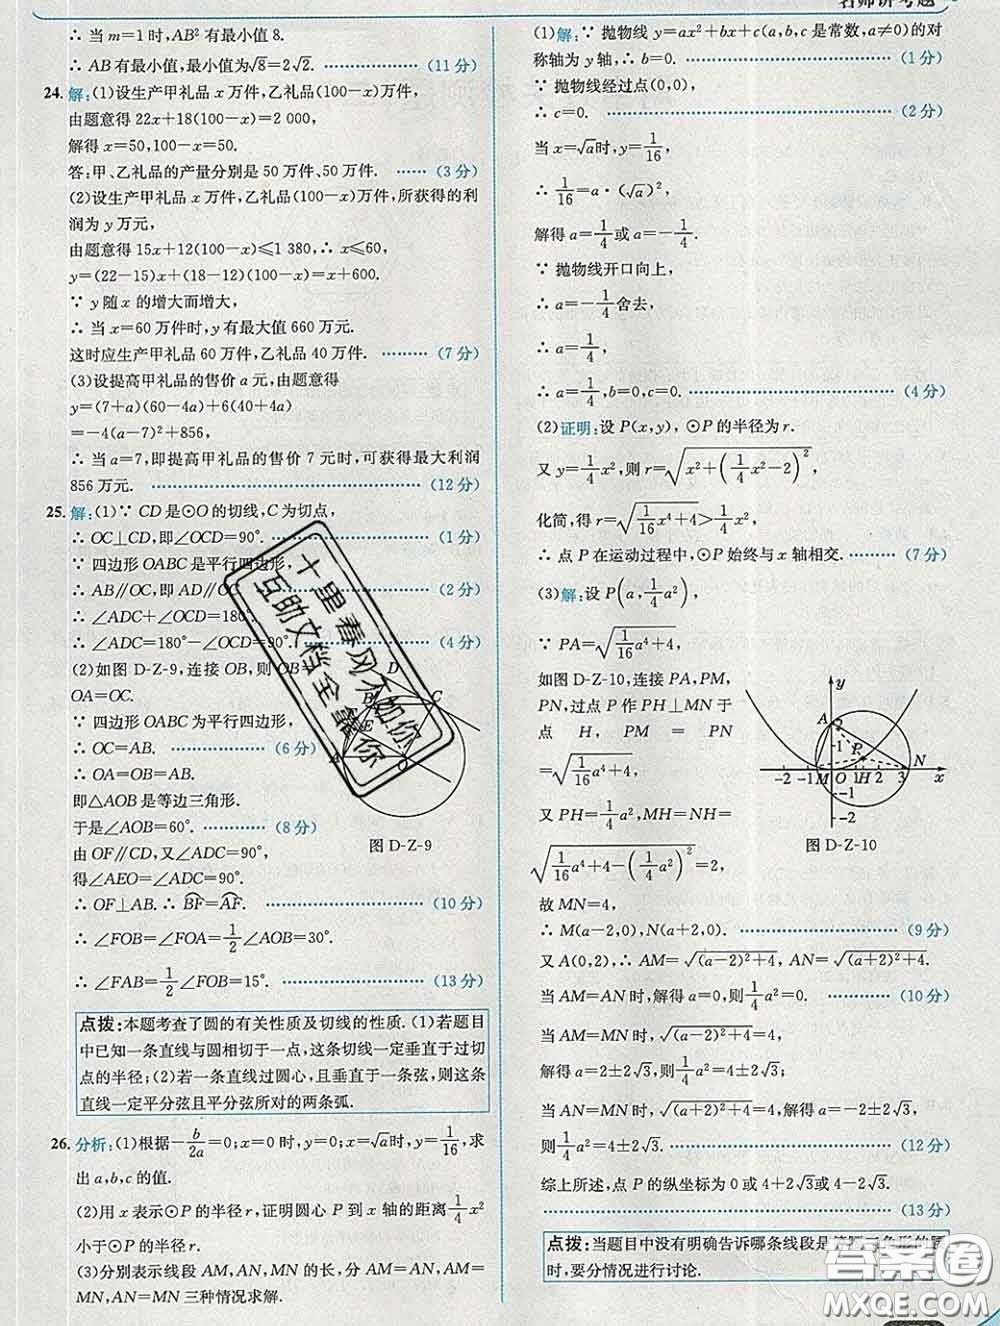 名师讲考题
∴ 当 m=1时,AB²有最小值 8.
∴ AB有最小值,最小值为√8=2√2. (11分)
24. 解:(1)设生产甲礼品 x 万件,乙礼品(100-x)万件,
由题意得 22x+18(100-x)=2 000,
解得 x=50,100-x=50.
答:甲、乙礼品的产量分别是 50 万件、50 万件. (3分)
(2)设生产甲礼品 x 万件,乙礼品(100-x)万件,所获得的利
润为 y 万元,
由题意得 15x+12(100-x)≤1 380,∴ x≤60,
y=(22-15)x+(18-12)(100-x)=x+600.
∵ y 随 x 的增大而增大,
∴ 当 x=60 万件时,y 有最大值 660 万元.
这时应生产甲礼品 60 万件,乙礼品 40 万件. (7分)
(3)设提高甲礼品的售价 a 元,由题意得
y=(7+a)(60-4a)+6(40+4a)
=-4(a-7)²+856,
∴ 当 a=7,即提高甲礼品的售价 7 元时,可获得最大利润
856 万元. (12分)
25. 解:(1)∵ CD 是⊙O 的切线,C 为切点,
∴ OC⊥CD,即∠OCD=90°. (1分)
∵ 四边形 OABC 是平行四边形,
∴ AB∥OC,即 AD∥OC. (2分)
∴ ∠ADC+∠OCD=180°
∴ ∠ADC=180°-∠OCD=90°. (4分)
(2)如图 D-Z-9,连接 OB,则 OB=
OA=OC.
∵ 四边形 OABC 为平行四边形,
∴ OC=AB. (6分)
∴ OA=OB=AB.
即△AOB 是等边三角形.
于是∠AOB=60°. (8分)
由 OF∥CD,又∠ADC=90°,
得∠AEO=∠ADC=90°.
∴ OF⊥AB.∴ B͡F=A͡F. (10分)
∴ ∠FOB=∠FOA=1/2∠AOB=30°.
∴ ∠FAB=1/2∠FOB=15°. (13分)
D
C
E
图 D-Z-9
点拨:本题考查了圆的有关性质及切线的性质.(1)若题目
中已知一条直线与圆相切于一点,这条切线一定垂直于过切
点的半径;(2)若一条直线过圆心,且垂直于一条弦,则这条
直线一定平分弦且平分弦所对的两条弧.
26. 分析:(1)根据-b/2a=0;x=0 时,y=0;x=√a时,y=1/16,求
出 a,b,c 的值.
(2)用 x 表示⊙P 的半径 r,证明圆心 P 到 x 轴的距离1/4x²
小于⊙P 的半径 r.
(3)分别表示线段 AM,AN,MN 的长,分 AM=AN,AM=
MN,AN=MN 三种情况求解.
(1)解:∵ 抛物线 y=ax²+bx+c(a,b,c 是常数,a≠0)的对
称轴为 y 轴,∴ b=0. (1分)
∵ 抛物线经过点(0,0),
∴ c=0. (2分)
当 x=√a时,y=1/16,
∴ 1/16=a·(√a)²,
解得 a=1/4或 a=-1/4.
∵ 抛物线开口向上,
∴ a=-1/4舍去,
∴ a=1/4,
∴ a=1/4,b=0,c=0. (4分)
(2)证明:设 P(x,y),⊙P 的半径为 r.
又 y=1/4x²,则 r=√(x²+(1/4x²-2)²),
化简,得 r=√(1/16x⁴+4)>1/4x².
∴ 点 P 在运动过程中,⊙P 始终与 x 轴相交. (7分)
(3)解:设 P(a,1/4a²),
∵ PA=√(1/16a⁴+4),
如图 D-Z-10,连接 PA,PM,
PN,过点 P 作 PH⊥MN 于
点 H, PM = PN
=√(1/16a⁴+4).
又 PH=1/4a²,MH=NH=
√(1/16a⁴+4-(1/4a²)²)=2,
故 MN=4,
∴ M(a-2,0),N(a+2,0). (9分)
又 A(0,2),∴ AM=√((a-2)²+4),AN=√((a+2)²+4),
当 AM=AN 时,解得 a=0,则1/4a²=0. (10分)
当 AM=MN 时,√((a-2)²+4)=4,
解得 a=2±2√3,则1/4a²=4±2√3.
当 AN=MN 时,√((a+2)²+4)=4,解得 a=-2±2√3,
则1/4a²=4±2√3. (12分)
综上所述,点 P 的纵坐标为 0 或 4+2√3或 4-2√3.
(13分)
y
A
P
-2 -1 M O 1 H 2 3 N x
1
-1
-2
图 D-Z-10
点拨:当题目中没有明确告诉哪条线段是等腰三角形的腰
时,要分情况进行讨论.
十里春风不如你
互助文档全靠你
答案圈
MXQE.COM